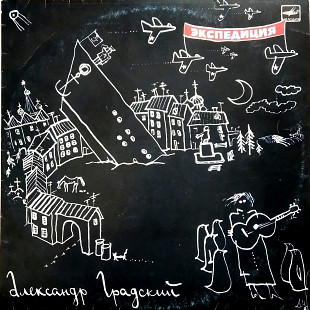 ЭКСПЕДИЦИЯ
Александр Градский